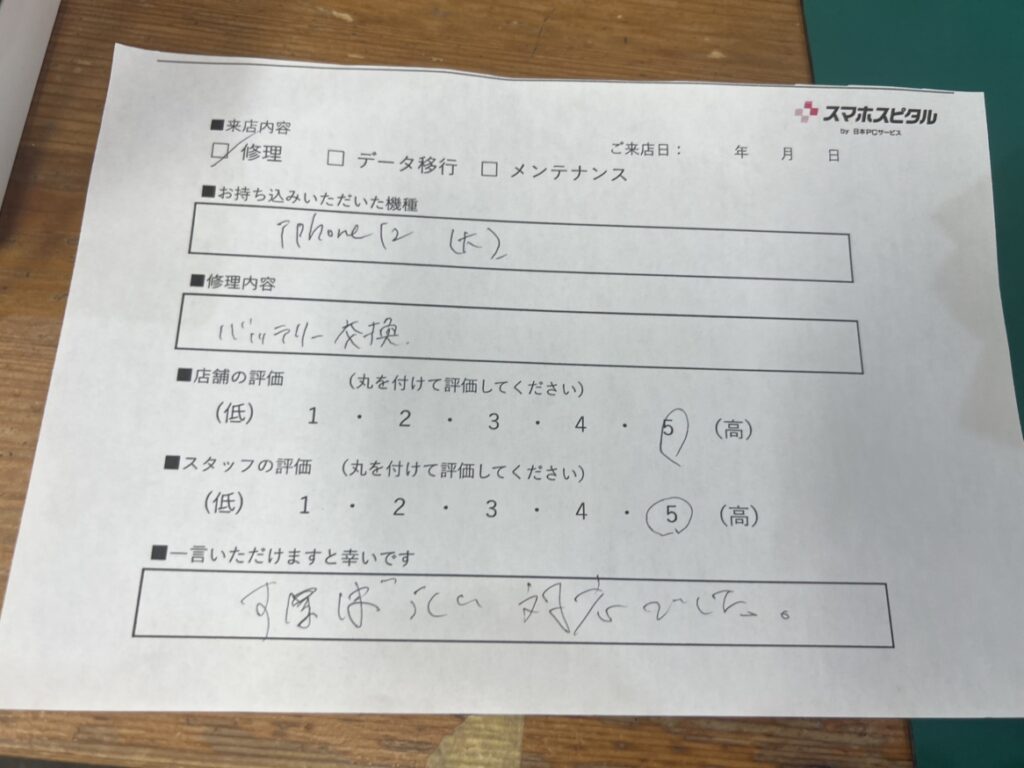 スマホスピタル
by 日本PCサービス
■来店内容
ご来店日: 年 月 日
☑ 修理 □ データ移行 □ メンテナンス
■お持ち込みいただいた機種
iphone 12 (大)
■修理内容
バッテリー交換.
■店舗の評価 (丸を付けて評価してください)
(低) 1 ・ 2 ・ 3 ・ 4 ・ 5 (高)
■スタッフの評価 (丸を付けて評価してください)
(低) 1 ・ 2 ・ 3 ・ 4 ・ 5 (高)
■一言いただけますと幸いです
対応でした。